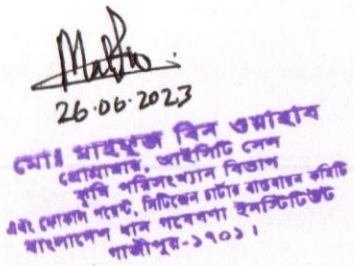 26.06.2023
মোঃ মাহফুজ বিন ওয়াহাব
প্রোগ্রামার, আইসিটি সেল
কৃষি পরিসংখ্যান বিভাগ
এবং ফোকাল পয়েন্ট, সিটিজেন চার্টার বাস্তবায়ন কমিটি
বাংলাদেশ ধান গবেষণা ইনস্টিটিউট
গাজীপুর-১৭০১।